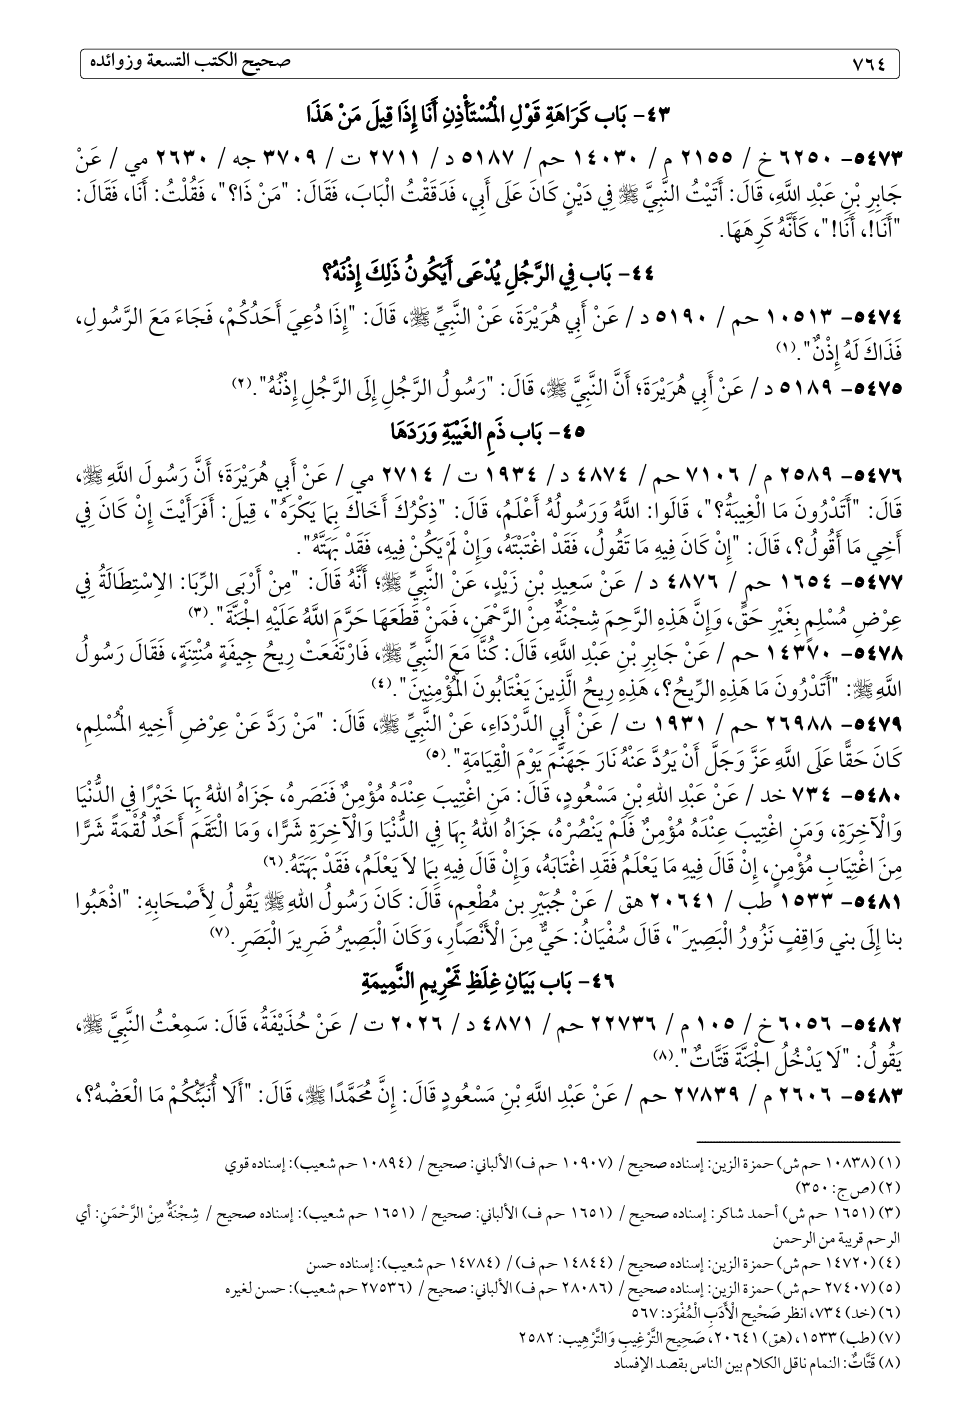 ٧٦٤ صحيح الكتب التسعة وزوائده
٤٣- بَاب كَرَاهَةِ قَوْلِ الْمُسْتَأْذِنِ أَنَا إِذَا قِيلَ مَنْ هَذَا
٥٤٧٣- ٦٢٥٠ خ / ٢١٥٥ م / ١٤٠٣٠ حم / ٥١٨٧ د / ٢٧١١ ت / ٣٧٠٩ جه / ٢٦٣٠ مي / عَنْ
جَابِرِ بْنِ عَبْدِ اللَّهِ، قَالَ: أَتَيْتُ النَّبِيَّ ﷺ فِي دَيْنٍ كَانَ عَلَى أَبِي، فَدَقَقْتُ الْبَابَ، فَقَالَ: "مَنْ ذَا؟"، فَقُلْتُ: أَنَا، فَقَالَ:
"أَنَا!، أَنَا!"، كَأَنَّهُ كَرِهَهَا.
٤٤- بَاب فِي الرَّجُلِ يُدْعَى أَيَكُونُ ذَلِكَ إِذْنَهُ؟
٥٤٧٤- ١٠٥١٣ حم / ٥١٩٠ د / عَنْ أَبِي هُرَيْرَةَ، عَنْ النَّبِيِّ ﷺ، قَالَ: "إِذَا دُعِيَ أَحَدُكُمْ، فَجَاءَ مَعَ الرَّسُولِ،
فَذَاكَ لَهُ إِذْنٌ".(١)
٥٤٧٥- ٥١٨٩ د / عَنْ أَبِي هُرَيْرَةَ؛ أَنَّ النَّبِيَّ ﷺ، قَالَ: "رَسُولُ الرَّجُلِ إِلَى الرَّجُلِ إِذْنُهُ".(٢)
٤٥- بَاب ذَمِ الغَيْبَةِ وَرَدَهَا
٥٤٧٦- ٢٥٨٩ م / ٧١٠٦ حم / ٤٨٧٤ د / ١٩٣٤ ت / ٢٧١٤ مي / عَنْ أَبِي هُرَيْرَةَ؛ أَنَّ رَسُولَ اللَّهِ ﷺ،
قَالَ: "أَتَدْرُونَ مَا الْغِيبَةُ؟"، قَالُوا: اللَّهُ وَرَسُولُهُ أَعْلَمُ، قَالَ: "ذِكْرُكَ أَخَاكَ بِمَا يَكْرَهُ"، قِيلَ: أَفَرَأَيْتَ إِنْ كَانَ فِي
أَخِي مَا أَقُولُ؟، قَالَ: "إِنْ كَانَ فِيهِ مَا تَقُولُ، فَقَدْ اغْتَبْتَهُ، وَإِنْ لَمْ يَكُنْ فِيهِ، فَقَدْ بَهَتَّهُ".
٥٤٧٧- ١٦٥٤ حم / ٤٨٧٦ د / عَنْ سَعِيدِ بْنِ زَيْدٍ، عَنْ النَّبِيِّ ﷺ؛ أَنَّهُ قَالَ: "مِنْ أَرْبَى الرِّبَا: الِاسْتِطَالَةُ فِي
عِرْضِ مُسْلِمٍ بِغَيْرِ حَقٍّ، وَإِنَّ هَذِهِ الرَّحِمَ شِجْنَةٌ مِنْ الرَّحْمَنِ، فَمَنْ قَطَعَهَا حَرَّمَ اللَّهُ عَلَيْهِ الْجَنَّةَ".(٣)
٥٤٧٨- ١٤٣٧٠ حم / عَنْ جَابِرِ بْنِ عَبْدِ اللَّهِ، قَالَ: كُنَّا مَعَ النَّبِيِّ ﷺ، فَارْتَفَعَتْ رِيحُ جِيفَةٍ مُنْتِنَةٍ، فَقَالَ رَسُولُ
اللَّهِ ﷺ: "أَتَدْرُونَ مَا هَذِهِ الرِّيحُ؟، هَذِهِ رِيحُ الَّذِينَ يَغْتَابُونَ الْمُؤْمِنِينَ".(٤)
٥٤٧٩- ٢٦٩٨٨ حم / ١٩٣١ ت / عَنْ أَبِي الدَّرْدَاءِ، عَنْ النَّبِيِّ ﷺ، قَالَ: "مَنْ رَدَّ عَنْ عِرْضِ أَخِيهِ الْمُسْلِمِ،
كَانَ حَقًّا عَلَى اللَّهِ عَزَّ وَجَلَّ أَنْ يَرُدَّ عَنْهُ نَارَ جَهَنَّمَ يَوْمَ الْقِيَامَةِ".(٥)
٥٤٨٠- ٧٣٤ خد / عَنْ عَبْدِ اللهِ بْنِ مَسْعُودٍ، قَالَ: مَنِ اغْتِيبَ عِنْدَهُ مُؤْمِنٌ فَنَصَرَهُ، جَزَاهُ اللهُ بِهَا خَيْرًا فِي الدُّنْيَا
وَالْآخِرَةِ، وَمَنِ اغْتِيبَ عِنْدَهُ مُؤْمِنٌ فَلَمْ يَنْصُرْهُ، جَزَاهُ اللهُ بِهَا فِي الدُّنْيَا وَالْآخِرَةِ شَرًّا، وَمَا الْتَقَمَ أَحَدٌ لُقْمَةً شَرًّا
مِنَ اغْتِيَابِ مُؤْمِنٍ، إِنْ قَالَ فِيهِ مَا يَعْلَمُ فَقَدِ اغْتَابَهُ، وَإِنْ قَالَ فِيهِ بِمَا لاَ يَعْلَمُ، فَقَدْ بَهَتَهُ.(٦)
٥٤٨١- ١٥٣٣ طب / ٢٠٦٤١ هق / عَنْ جُبَيْرِ بن مُطْعِمٍ، قَالَ: كَانَ رَسُولُ اللهِ ﷺ يَقُولُ لِأَصْحَابِهِ: "اذْهَبُوا
بنا إِلَى بني وَاقِفٍ نَزُورُ الْبَصِيرَ"، قَالَ سُفْيَانُ: حَيٌّ مِنَ الْأَنْصَارِ، وَكَانَ الْبَصِيرُ ضَرِيرَ الْبَصَرِ.(٧)
٤٦- بَاب بَيَانِ غِلَظِ تَحْرِيمِ النَّمِيمَةِ
٥٤٨٢- ٦٠٥٦ خ / ١٠٥ م / ٢٢٧٣٦ حم / ٤٨٧١ د / ٢٠٢٦ ت / عَنْ حُذَيْفَةُ، قَالَ: سَمِعْتُ النَّبِيَّ ﷺ،
يَقُولُ: "لَا يَدْخُلُ الْجَنَّةَ قَتَّاتٌ".(٨)
٥٤٨٣- ٢٦٠٦ م / ٢٧٨٣٩ حم / عَنْ عَبْدِ اللَّهِ بْنِ مَسْعُودٍ قَالَ: إِنَّ مُحَمَّدًا ﷺ، قَالَ: "أَلَا أُنَبِّئُكُمْ مَا الْعَضْهُ؟،
(١) (١٠٨٣٨ حم ش) حمزة الزين: إسناده صحيح / (١٠٩٠٧ حم ف) الألباني: صحيح / (١٠٨٩٤ حم شعيب): إسناده قوي
(٢) (ص ج: ٣٥٠)
(٣) (١٦٥١ حم ش) أحمد شاكر: إسناده صحيح / (١٦٥١ حم ف) الألباني: صحيح / (١٦٥١ حم شعيب): إسناده صحيح / شِجْنَةٌ مِنْ الرَّحْمَنِ: أي
الرحم قريبة من الرحمن
(٤) (١٤٧٢٠ حم ش) حمزة الزين: إسناده صحيح / (١٤٨٤٤ حم ف)/ (١٤٧٨٤ حم شعيب): إسناده حسن
(٥) (٢٧٤٠٧ حم ش) حمزة الزين: إسناده صحيح / (٢٨٠٨٦ حم ف) الألباني: صحيح / (٢٧٥٣٦ حم شعيب): حسن لغيره
(٦) (خد) ٧٣٤، انظر صَحْيح الْأَدَبِ الْمُفْرَد: ٥٦٧
(٧) (طب) ١٥٣٣، (هق) ٢٠٦٤١، صَحِيح التَّرْغِيبِ وَالتَّرْهِيب: ٢٥٨٢
(٨) قَتَّاتٌ: النمام ناقل الكلام بين الناس بقصد الإفساد